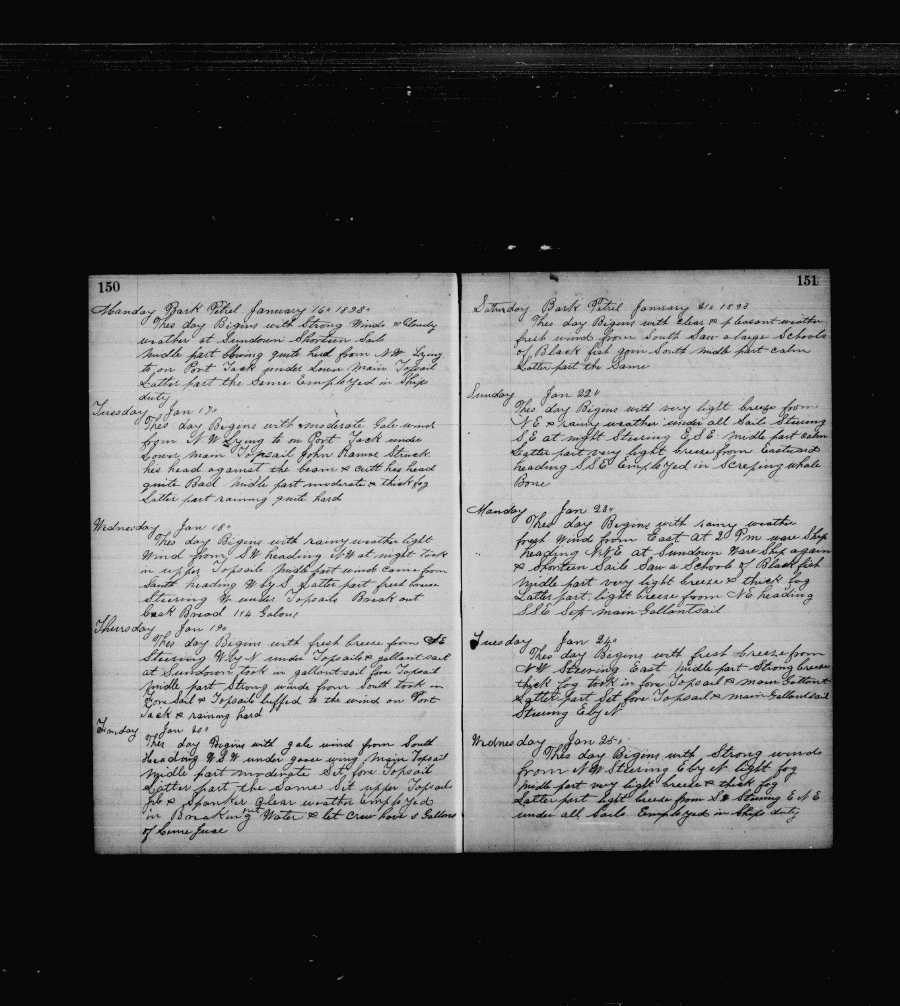 150
Manday Bark Petrel January 16" 1893"
Thes day Bigins with Strong Winds & Cloudy
weather at Sundown Shorten Sails
Midle part blowing quite hard from N W Lying
to on Port Tack under Lower Main Topsail
Latter part the Same Employed in Ships
duty
Tuesday Jan 17"
Thes day Begins with moderate Gale wind
from N W Lying to on Port Tack under
Lower main Topsail John Ramos Struck
his head against the beam & cutt his head
quite Bad Midle part moderate & thick fog
Latter part raining quite hard
Wednesday Jan 18"
Thes day Bigins with rainy weather light
Wind from S W heading N W at night took
in upper Topsails Midle part wind came from
South heading W by S Latter part fresh breeze
Steering W under Topsails Break out
Cask Bread 114 Galons
Thursday Jan 19"
Thes day Begins with fresh breeze from SE
Steering W by N under Topsails & gallant sail
at Sundown took in gallant sail fore Topsail
Midle part Strong winds from South took in
Fore Sail & Topsails luffed to the wind on Port
Tack & raining hard
Friday Jan 20"
Thes day Begins with gale wind from South
Heading W S W under goose wing main Topsail
Midle part moderate Set fore Topsail
Latter part the Same Set upper Topsails
& Spanker Clear weather Employed
in Breaking out Water & let Crew have 5 Gallons
of Lime Juse
151
Saturday Bark Petrel January 21" 1893
Thes day Bigins with clear & pleasant weather
fresh wind from South Saw a large Schools
of Black fish goin South Midle part calm
Latter part the Same
Sunday Jan 22"
Thes day Bigins with very light breeze from
N E & rainy weather under all Sails Steering
S E at night Steering E S E Midle part calm
Latter part very light breeze from Eastward
heading S S E Employed in Scraping whale
Bone
Manday Jan 23"
Thes day Begins with rainy weather
fresh Wind from East At 30 P m ware Ship
heading N N E at Sundown Ware Ship again
& Shorten Sails Saw a Schools of Black fish
Midle part very light breeze & thick fog
Latter part light breeze from N E heading
S S E Set main Gallantsail
Tuesday Jan 24"
Thes day Begins with fresh breeze from
N W Steering East Midle part Strong breeze
thick fog took in fore Topsail & main Gallant
Latter part Set fore Topsail & main Gallantsail
Steering E by N
Wednesday Jan 25"
Thes day Bigins with Strong wind
from N W Steering E by N light fog
Midle part very light breeze & thick fog
Latter part light breeze from Steering E N E
under all Sails Employed in Ships duty